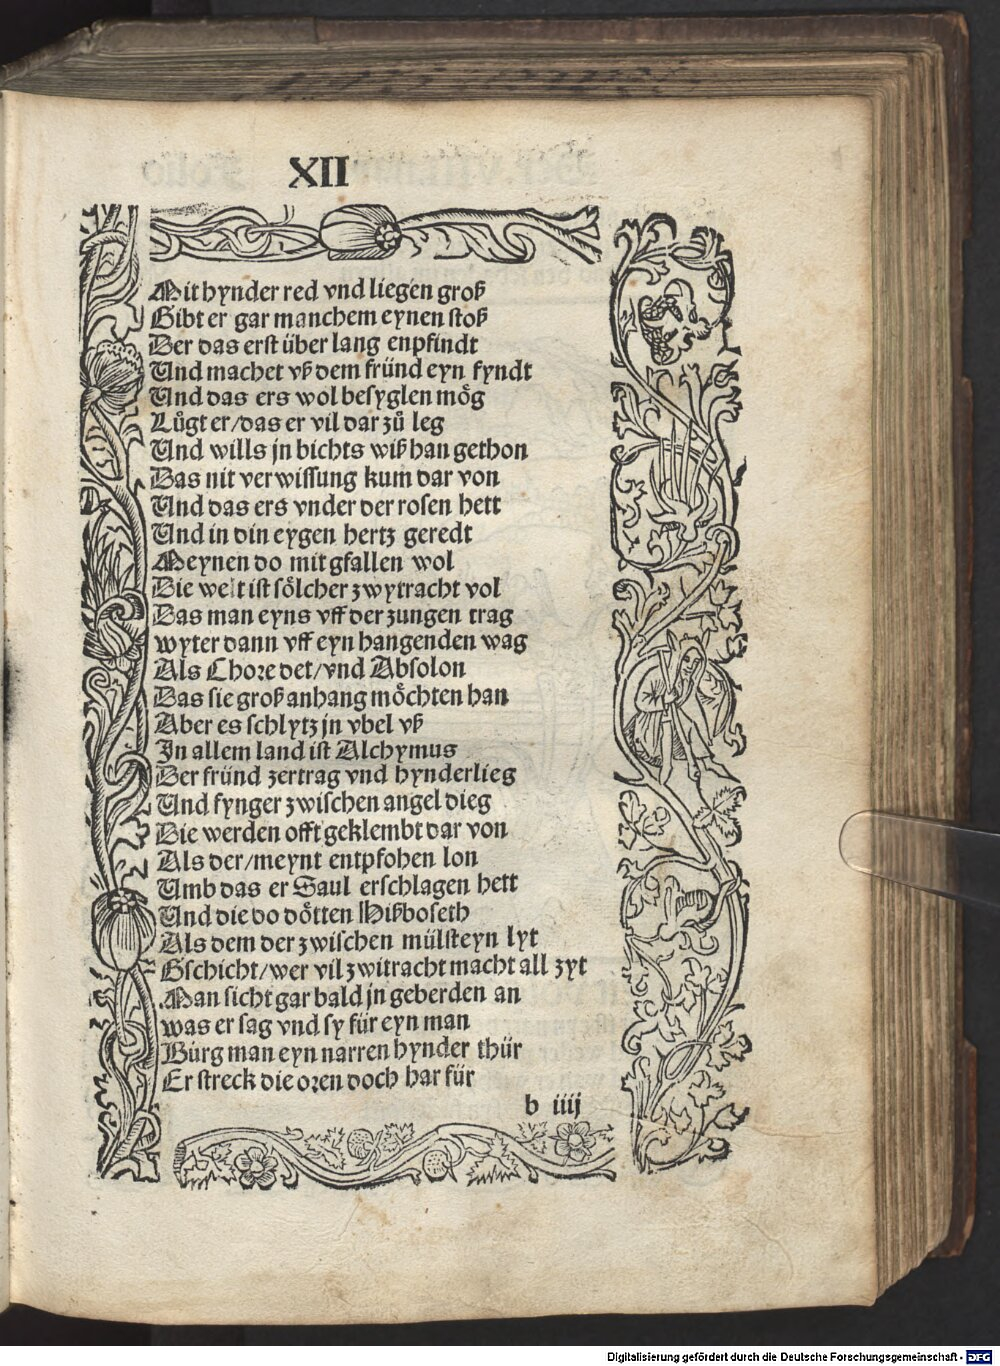 XII
Mit hynder red vnd liegen groß
Gibt er gar manchem eynen stoß
Der das erst über lang enpfindt
Und machet vß dem fründ eyn fyndt
Und das ers wol besyglen mög
Lůgt er/das er vil dar zů leg
Und wills jn bichts wiß han gethon
Das nit verwissung kum dar von
Und das ers vnder der rosen hett
Und in din eygen hertz geredt
Meynen do mit gfallen wol
Die welt ist sölcher zwytracht vol
Das man eyns vff der zungen trag
wyter dann vff eyn hangenden wag
Als Chore det/vnd Absolon
Das sie groß anhang möchten han
Aber es schlytz jn vbel vß
In allem land ist Alchymus
Der fründ zertrag vnd hynderlieg
Und fynger zwischen angel dieg
Die werden offt geklembt dar von
Als der/meynt entpfohen lon
Umb das er Saul erschlagen hett
Und die do dötten Hißboseth
Als dem der zwischen mülsteyn lyt
Gschicht/wer vil zwitracht macht all zyt
Man sicht gar bald jn geberden an
was er sag vnd sy für eyn man
Bürg man eyn narren hynder thür
Er streck die oren doch har für
b iiij
Digitalisierung gefördert durch die Deutsche Forschungsgemeinschaft - DFG